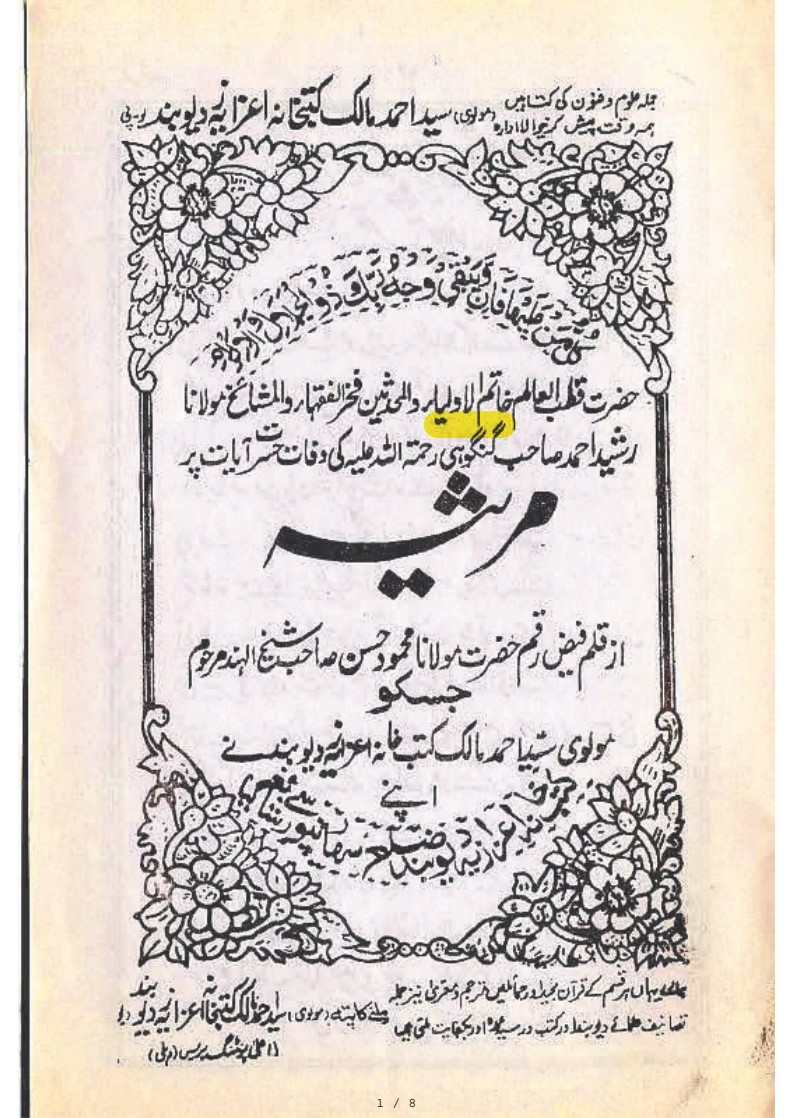 جملہ علوم و فنون کی کتابیں
ہمہ وقت پیش کرنیوالا ادارہ (مولوی) سید احمد مالک کتبخانہ اعزازیہ دیوبند یو-پی
كُلُّ مَنْ عَلَيْهَا فَانٍ وَّيَبْقٰى وَجْهُ رَبِّكَ ذُو الْجَلَالِ وَالْاِكْرَامِ
حضرت قطب العالم خاتم الاولیاء والمحدثین فخر الفقہاء والمشائخ مولانا
رشید احمد صاحب گنگوہی رحمۃ اللہ علیہ کی وفات حسرت آیات پر
مرثیہ
از قلم فیض رقم حضرت مولانا محمود حسن صاحب شیخ الہند مرحوم
جسکو
مولوی سید احمد مالک کتب خانہ اعزازیہ دیوبند نے
اپنے
کتب خانہ اعزازیہ دیوبند ضلع سہارنپور سے
یہاں ہر قسم کے قرآن مجید اور حمائلیں مترجم و معریٰ نیز جملہ
تصانیف علمائے دیوبند اور کتب درسیہ اور بکفایت ملتی ہیں
ملنے کا پتہ (مولوی) سید احمد مالک کتبخانہ اعزازیہ دیوبند
(اعلیٰ پرنٹنگ پریس دہلی)
1 / 8